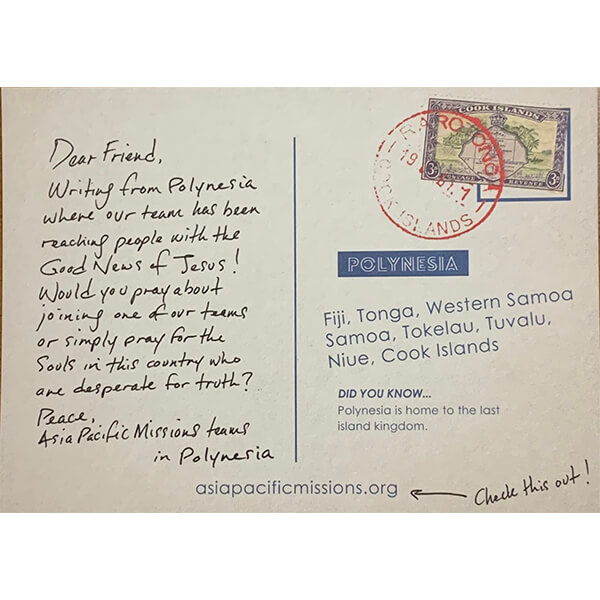 Dear Friend,
Writing from Polynesia
where our team has been
reaching people with the
Good News of Jesus!
Would you pray about
joining one of our teams
or simply pray for the
Souls in this country who
are desperate for truth?
Peace,
Asia Pacific Missions teams
in Polynesia
COOK ISLANDS
3d 3d
POSTAGE REVENUE
RAROTONGA
19
COOK ISLANDS
POLYNESIA
Fiji, Tonga, Western Samoa
Samoa, Tokelau, Tuvalu,
Niue, Cook Islands
DID YOU KNOW...
Polynesia is home to the last
island kingdom.
asiapacificmissions.org
Check this out!